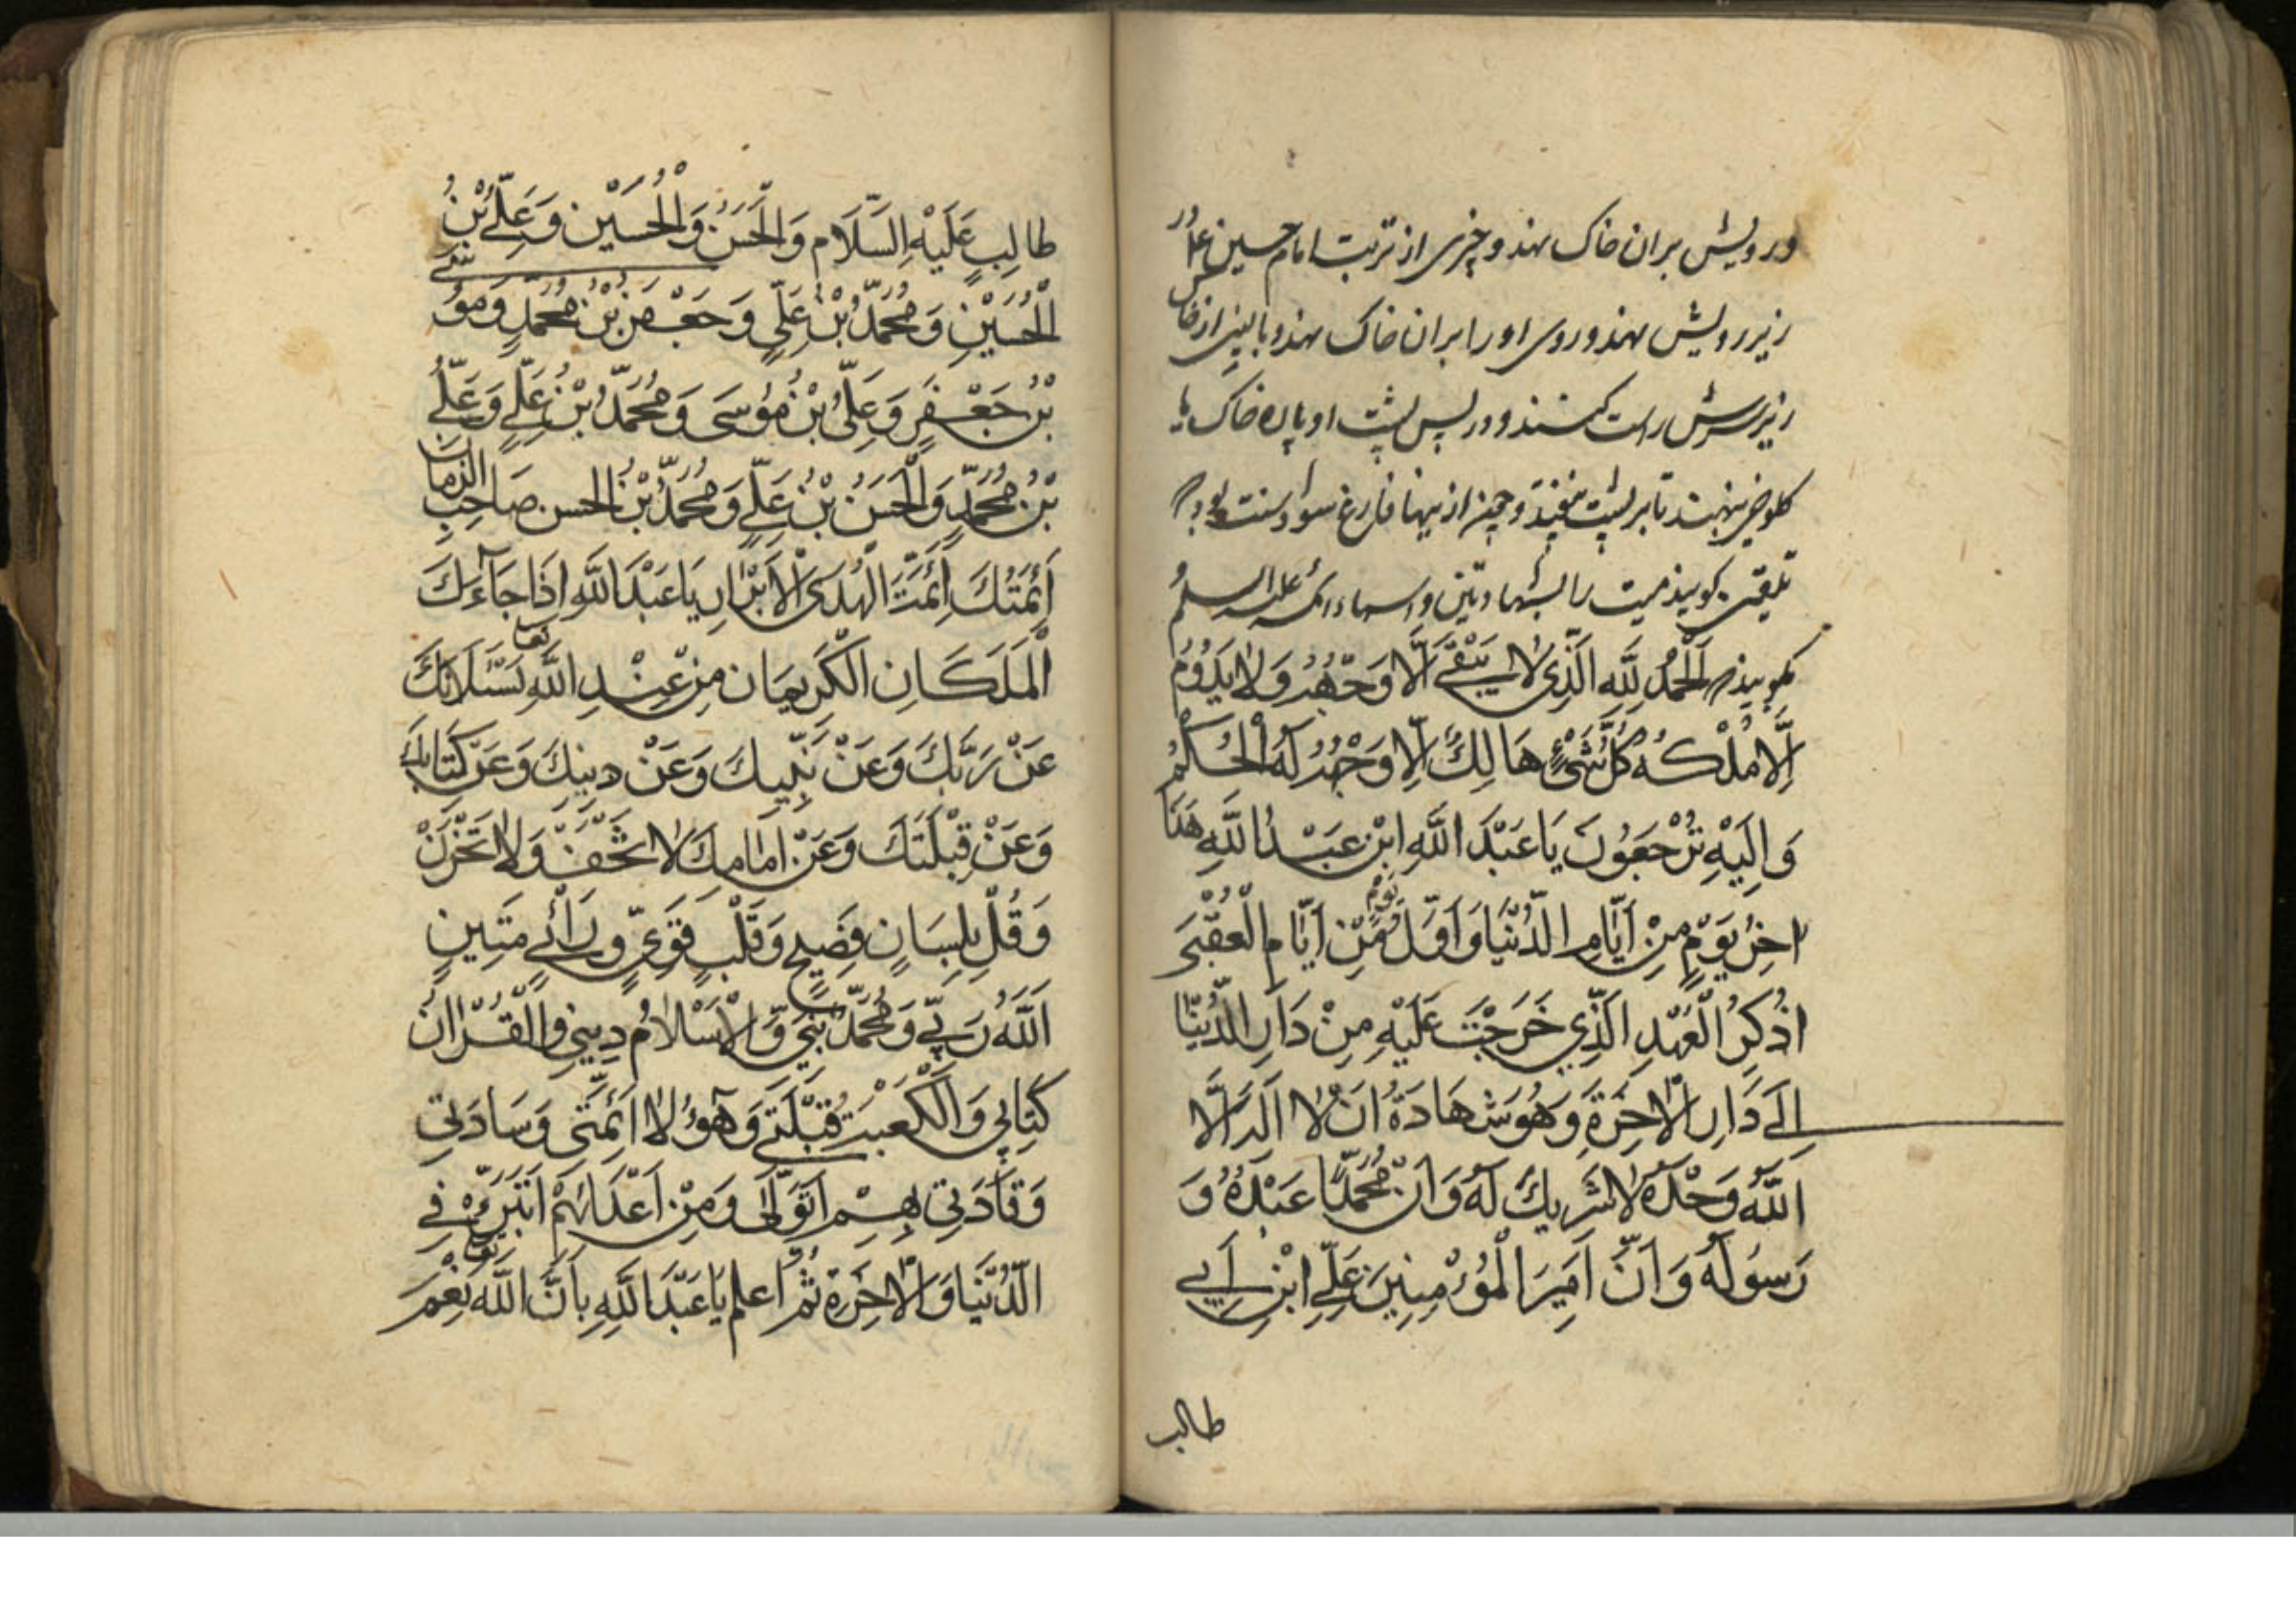 و رویش بران خاک نهند و چیزی از تربت امام حسین علیه
زیر رویش نهند و روی او را بران خاک نهند و بالینی از خاک
زیر سرش راست کنند و در پس پشت او پاره خاک یا
کلوخی بنهند تا بر پشت نیفتد و چون ازینها فارغ شود سنت بود که
تلقین گویند میت را بشهادتین و اسماء ائمه علیه السلم
بگویند الْحَمْدُ لِلَّهِ الَّذِی لا یَبْقَی اِلَّا وَجْهُهُ وَلا یَدُومُ
اِلَّا مُلْکُهُ کُلُّ شَیْءٍ هَالِكٌ اِلَّا وَجْهُهُ لَهُ الْحُکْمُ
وَاِلَیْهِ تُرْجَعُونَ یَا عَبْدَ اللَّهِ ابْن عَبْدُ اللَّهِ هَذَا
اٰخِرُ یَوْمٍ مِنْ اَیَّامِ الدُّنْیَا وَاَوَّلُ یَوْمٍ مِّنْ اَیَّامِ الْعُقْبَی
اذْکِرُ الْعَهْدِ الَّذِی خَرَجْتَ عَلَیْهِ مِنْ دَارِ الدُّنْیَا
اِلَی دَارِ الْاٰخِرَةِ وَهُوَ شَهَادَةُ اَنْ لا اِلَهَ اِلَّا
اللَّهُ وَحْدَهُ لا شَرِیكَ لَهُ وَاَنَّ مُحَمَّدًا عَبْدُهُ وَ
رَسُولُهُ وَاَنَّ اَمِیرَ الْمُؤْمِنِینَ عَلِیِّ ابْنِ اَبِی
طالب
طالِبٍ عَلَیْهِ السَّلَام وَالْحَسَنُ وَالْحُسَیْن وَعَلِیُّ بْنُ
الْحُسَیْنِ وَمُحَمَّدُ بْنُ عَلِیٍّ وَجَعْفَرُ بْنُ مُحَمَّدٍ وَمُوسَی
بْنُ جَعْفَرٍ وَعَلِیُّ بْنُ مُوسَی وَمُحَمَّدُ بْنُ عَلِیٍّ وَعَلِیُّ
بْنُ مُحَمَّدٍ وَالْحَسَنُ بْنُ عَلِیٍّ وَمُحَمَّدُ بْنُ الحسن صَاحِبِ الزمان
اَئِمَّتُكَ اَئِمَّتَ الْهُدَی الْاَبْرَارِ یَا عَبْدَ اللَّهِ اِذَا جَآءَكَ
الْمَلَکَانِ الْکَرِیمَان مِنْ عِنْدِ اللَّهِ تعا یَسْئَلَانِكَ
عَنْ رَبِّكَ وَعَنْ نَبِیِّكَ وَعَنْ دِینِكَ وَعَنْ کِتَابِكَ
وَعَنْ قِبْلَتِكَ وَعَنْ اِمَامِكَ لا تَخَفْ وَلا تَحْزَنْ
وَقُلْ بِلِسَانٍ فَصِیحٍ وَقَلْبٍ قَوِیٍّ وَرَأْیٍ مَتِینٍ
اَللَّهُ رَبِّی وَمُحَمَّدٌ نَبِیِّ وَالْاِسْلامُ دِینِی وَالْقُرْاٰنُ
کِتَابِی وَالْکَعْبَة قِبْلَتِی وَهٰؤُلاءِ اَئِمَّتِی وَسَادَتِی
وَقَادَتِی بِهِمْ اَتَوَلَّی وَمِنْ اَعْدَائِهِمْ اَتَبَرَّءُ فِی
الدُّنْیَا وَالْاٰخِرَةِ ثُمَّ اعلم یَا عَبْدَ اللَّهِ بِاَنَّ اللَّهَ تعا نِعْمَ